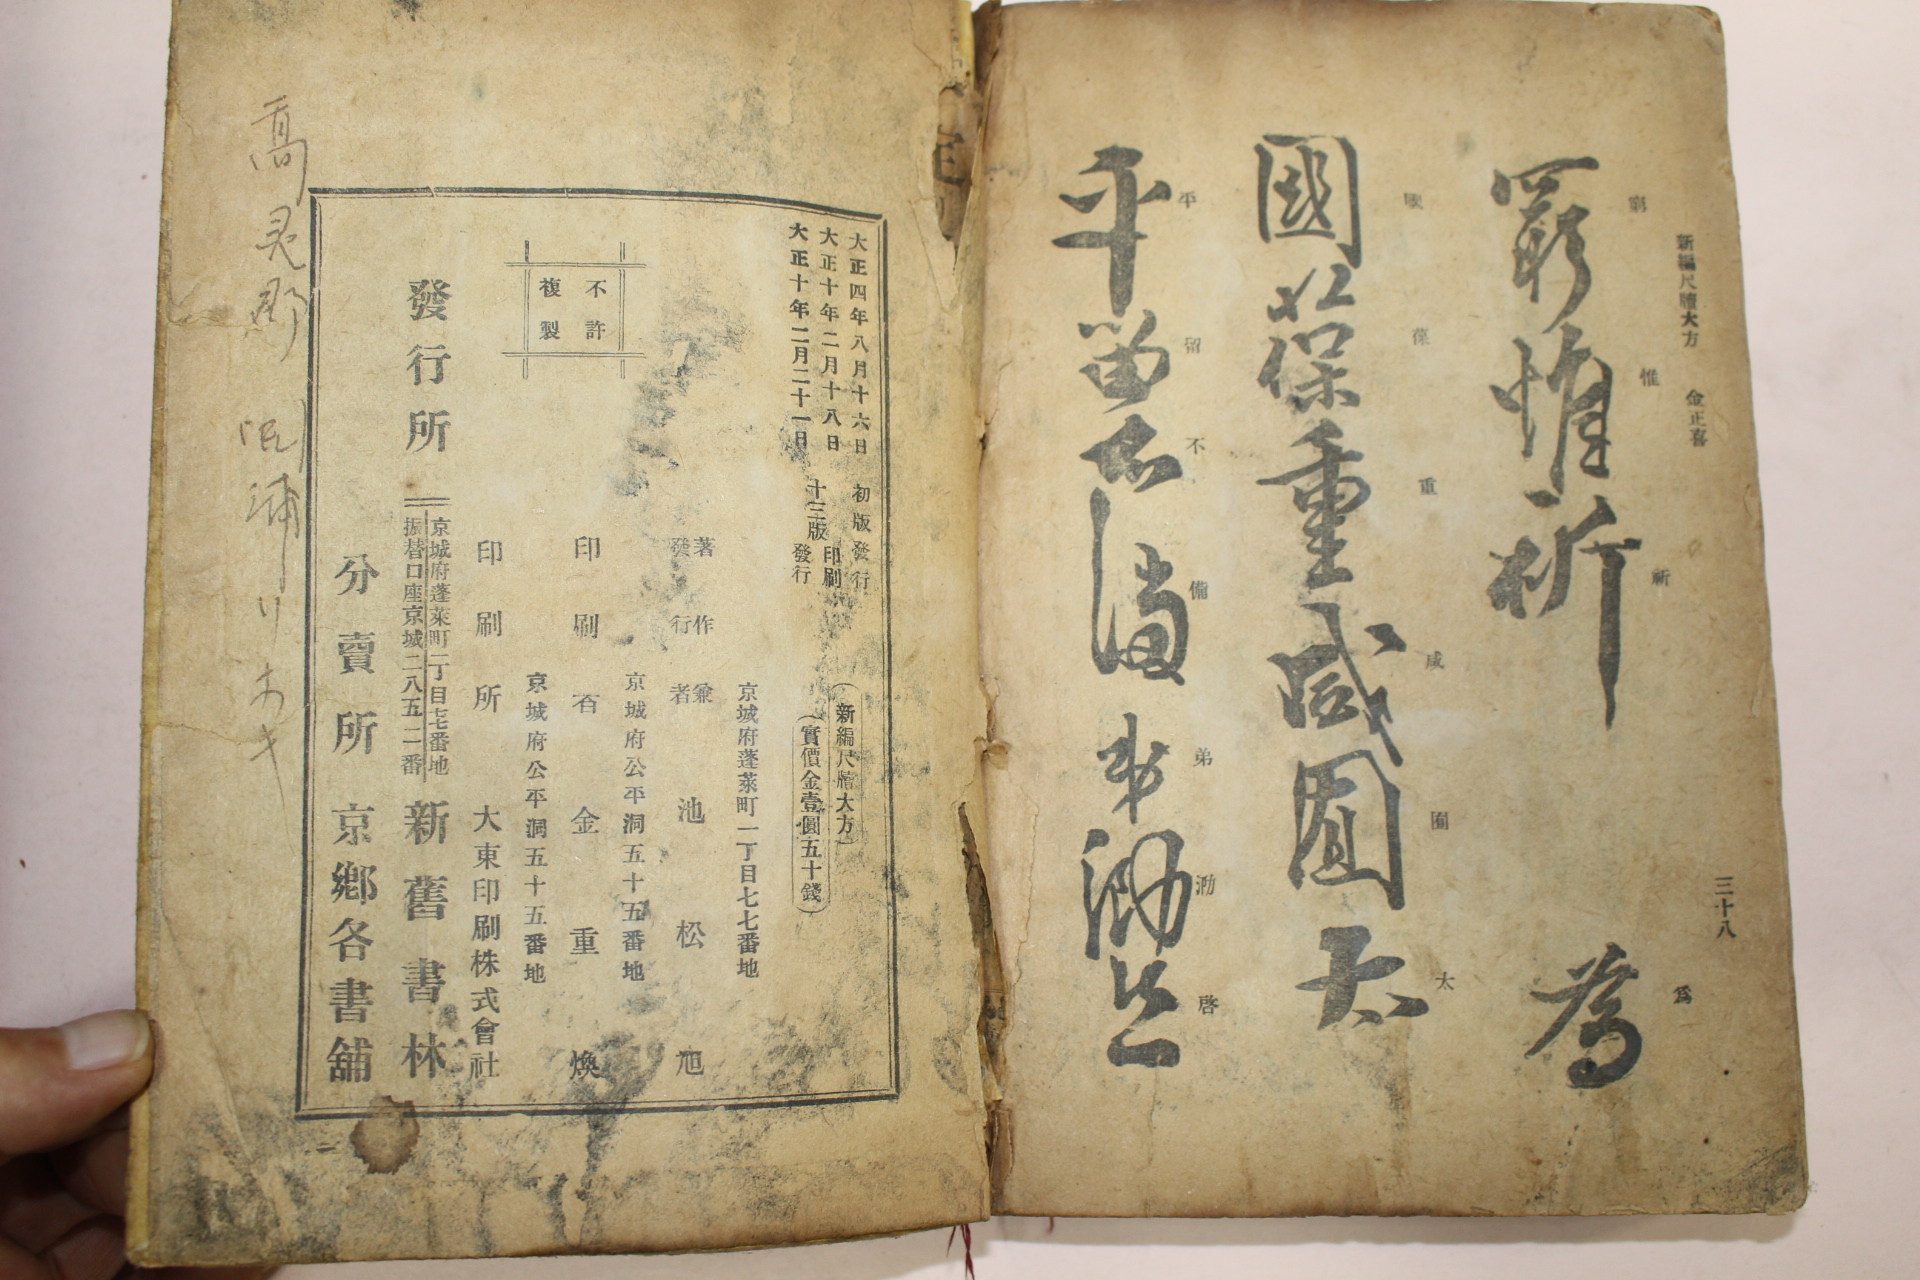 新編尺牘大方 金正喜 三十八
窮惟祈 爲
國葆重咸囿太
平留不備弟泐啓
窮 惟 祈 爲
葆 重 咸 囿 太
平 留 不 備 弟 泐 啓
大正四年八月十六日 初版發行
大正十年二月十八日 十三版印刷
大正十年二月二十一日 發行
(新編尺牘大方)
(實價金壹圓五十錢)
京城府蓬萊町一丁目七七番地
著作兼發行者 池松旭
京城府公平洞五十五番地
印刷者 金重煥
京城府公平洞五十五番地
印刷所 大東印刷株式會社
不許複製
京城府蓬萊町一丁目七七番地
發行所 新舊書林
振替口座京城二八五二番
分賣所 京鄕各書舖